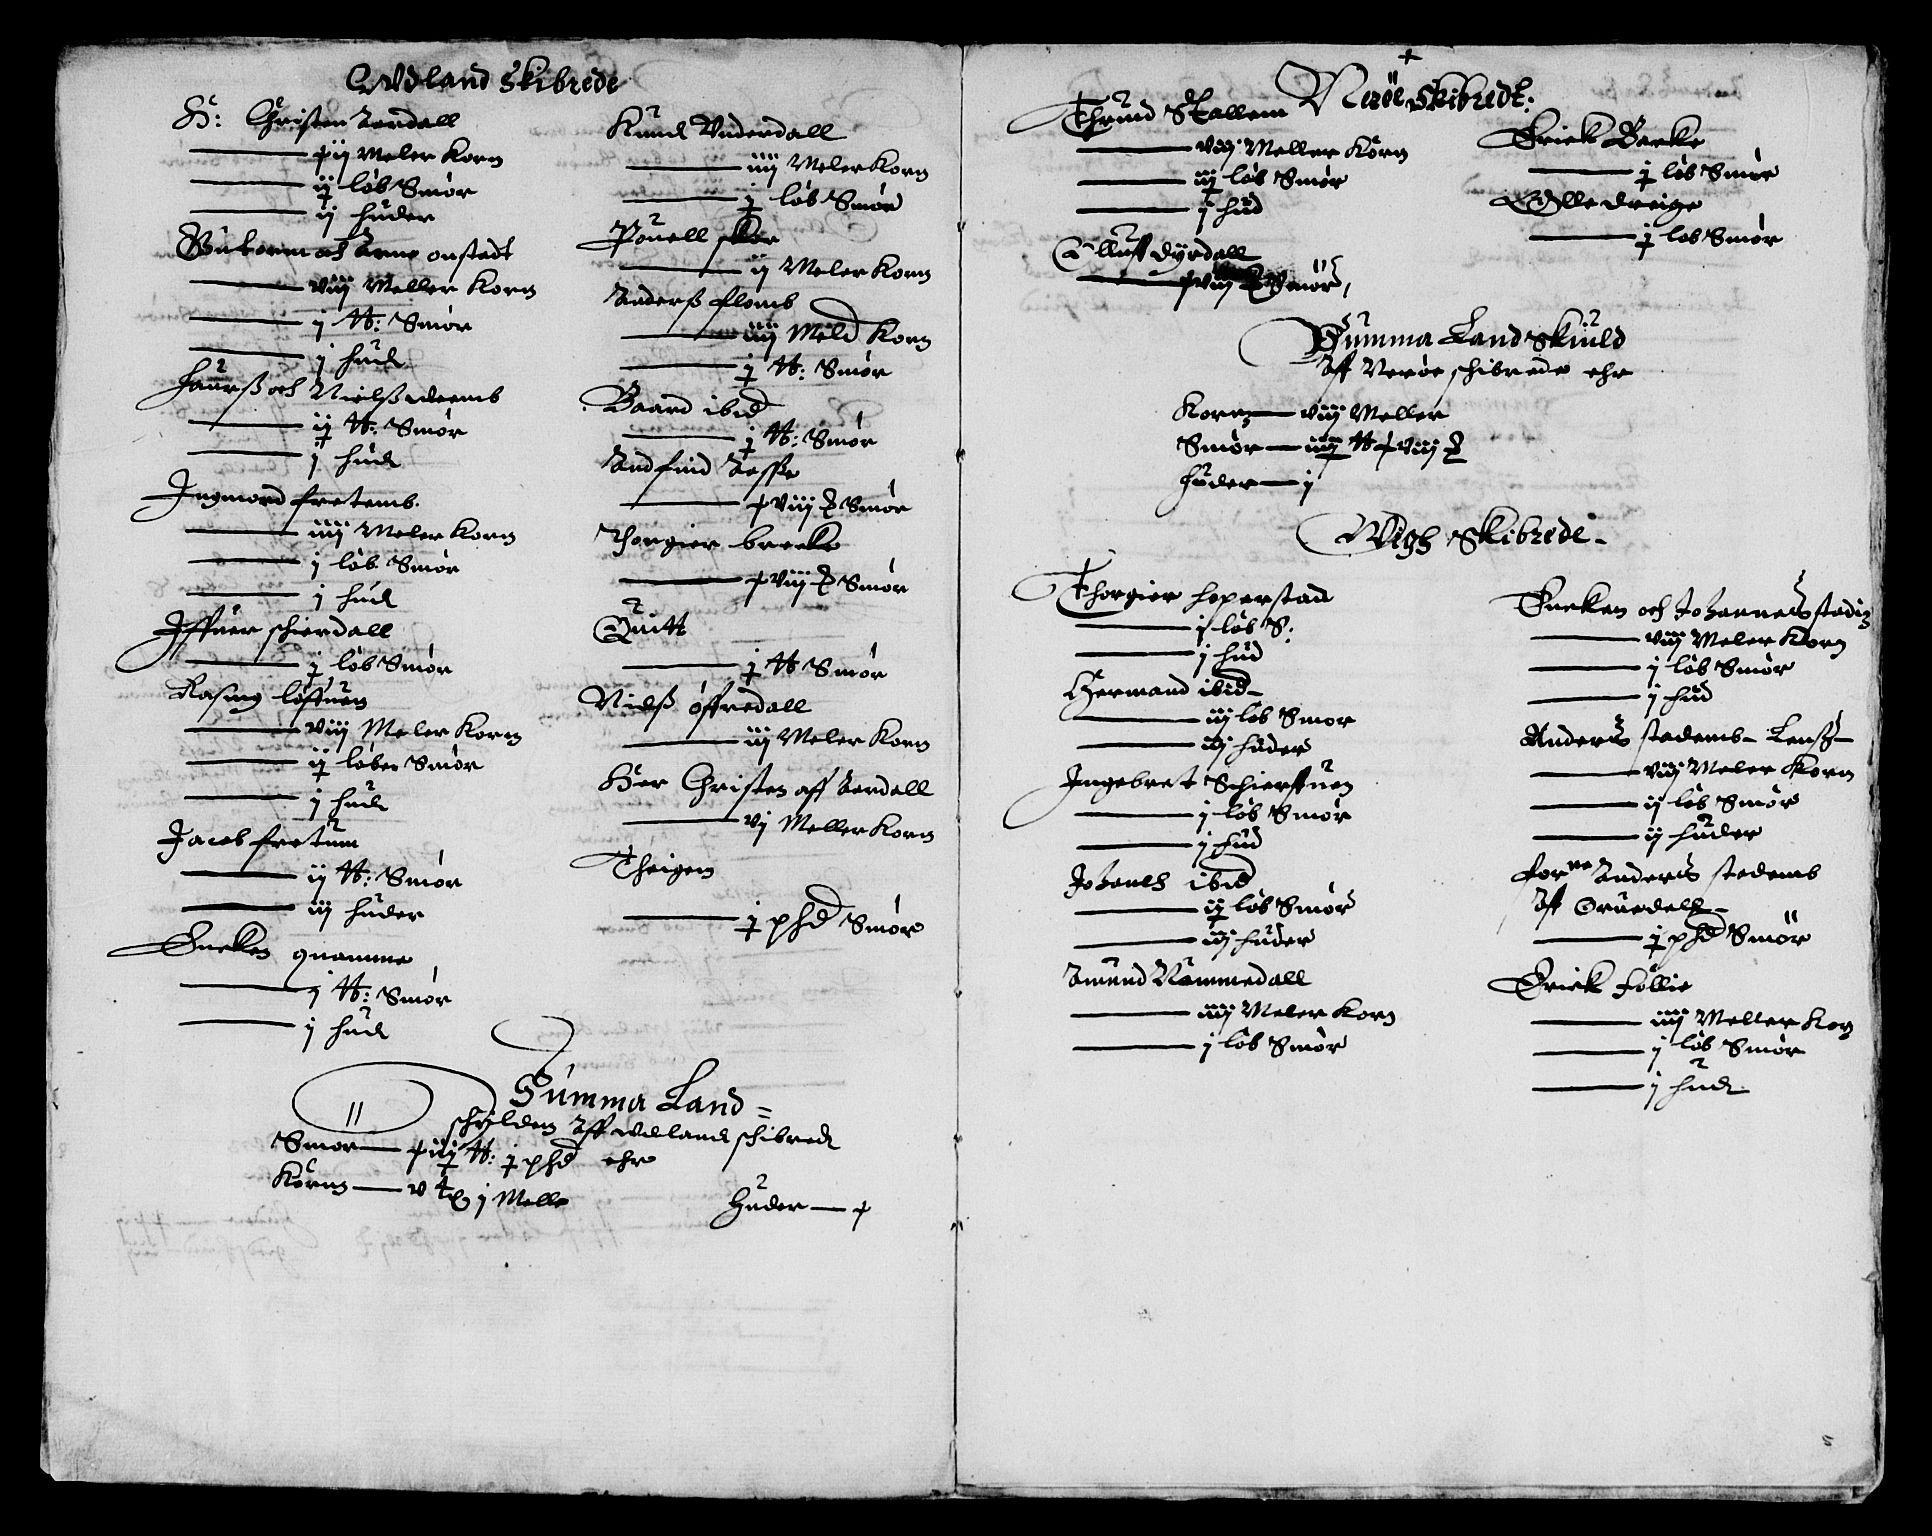 Wdland Skibrede
H: Christen Aardall
xij Meler Korn
ij løb Smør
ij huder
Gutorm och Arne onstadt
viij Meller Korn
j tt: Smør
j hud
Laurß och Nielß
ij tt: Smør
j hud
Ingmord fretemb.
iiij Meler Korn
j løb Smør
j hud
Iffuer schierdall
j løb Smør
Rasmy løfftuen
viij Meler Korn
ij løber Smør
j hud
Jacob fretum
ij tt: Smør
iij huder
Eneken quamme
j tt: Smør
j hud
Knud Underdall
iiij Meler Korn
j løb Smør
Pouell skor
ij Meler Korn
Anderß flomb
iiij Meld Korn
j tt: Smør
Baard ibid
j tt: Smør
Andfind Aaße
xviij Smør
Thorgier brecke
xviij Smør
Quitt
j tt Smør
Nielß offredall
iij Meler Korn
Her Christen aff Aardall
vj Meller Korn
Theigen
j phd Smør
Summa Land=
schylden Aff wdland schibrede
Smør xiij tt: j phd ehr
Korn v j Melle
Huder x
Nerøe Skibredt:
Thrund Skallem
viij Meller Korn
iij løb Smør
j hud
Olluff dyrdall
xviij Smør
Erick Backe
j løb Smør
Olle dreige
j løb Smør
Summa Land Skiuld
Aff Nerøe schibrede ehr
Korn viij Meller
Smør iiij tt xviij
Huder j
Wigh Skibrede
Thorgier hoperstad
j løb S:
j hud
Hermand ibid
iij løb Smør
iij huder
Ingebret Schierffuen
j løb Smør
j hud
Johanes ibid
ij løb Smør
iij huder
Amund Rammedall
iiij Meler Korn
j løb Smør
Eneken och Johannes stedin
viij Meler Korn
j løb Smør
j hud
Anders stedemb Lensz
viij Meler Korn
ij løb Smør
ij huder
forne Anders stedemb
Aff Ørredell
j phd Smør
Erick follie
iiij Meller Kor
j løb Smør
j hud
5